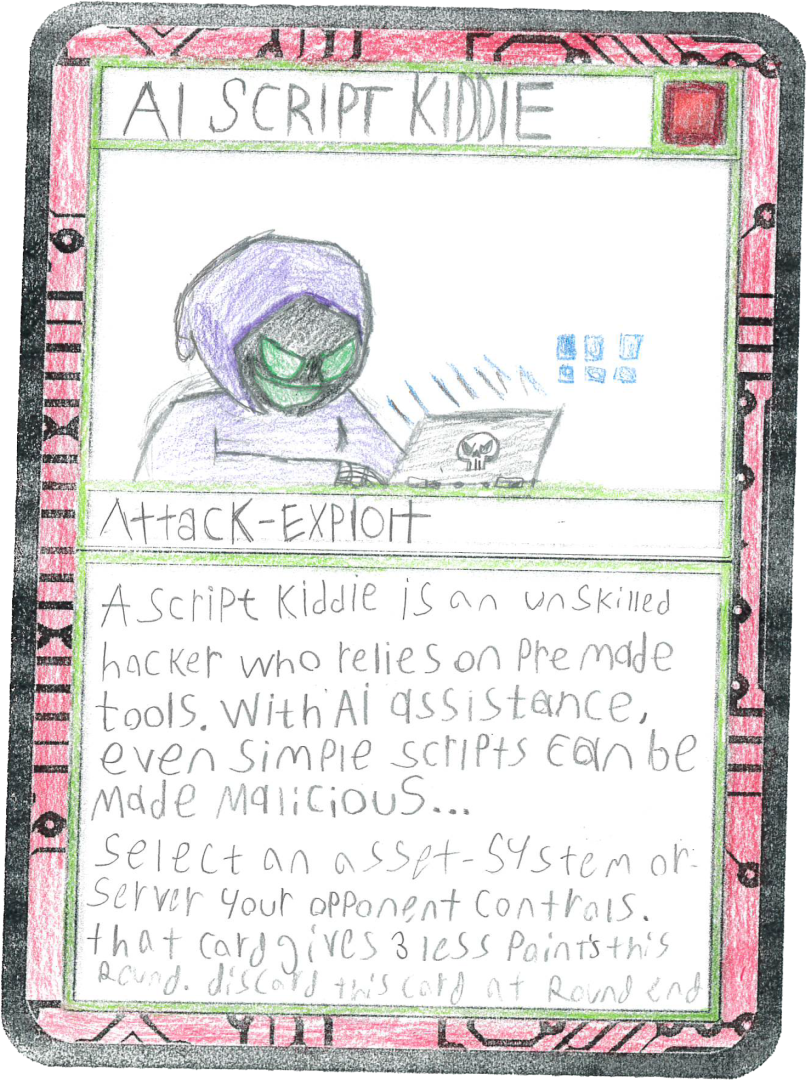 AI SCRIPT KIDDIE
Attack-Exploit
A script Kiddie is an unskilled
hacker who relies on premade
tools. With AI assistance,
even simple scripts can be
made malicious...
Select an asset-system or
server your opponent controls.
that card gives 3 less points this
Round. discard this card at Round end